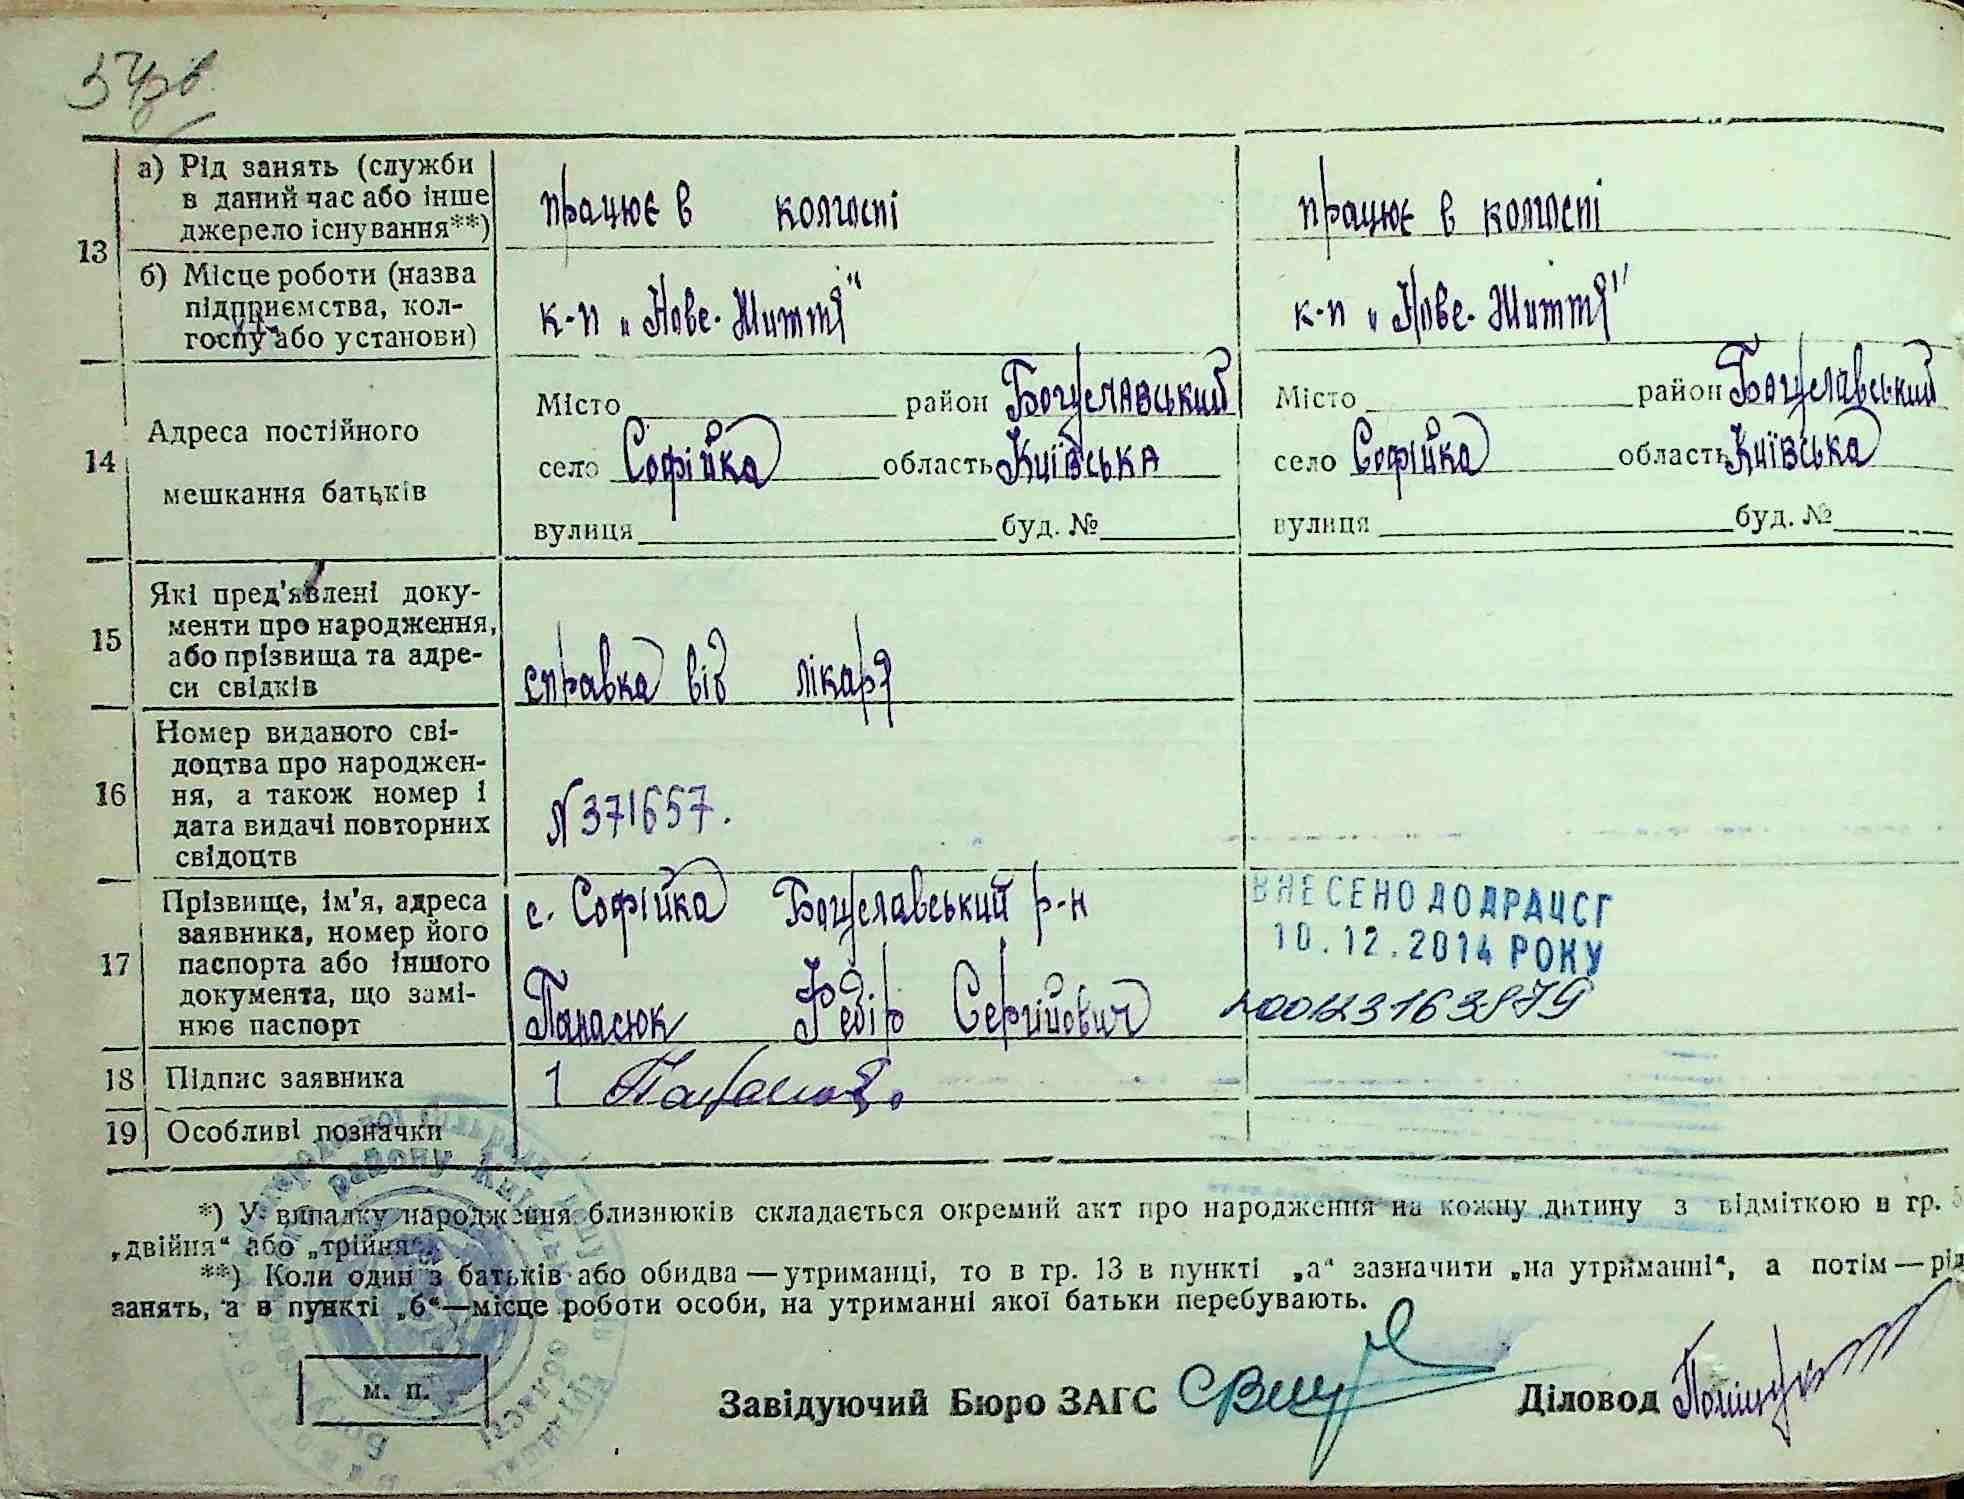 13
а) Рід занять (служби
в даний час або інше
джерело існування**)
працює в колгоспі
працює в колгоспі
б) Місце роботи (назва
підприємства, кол-
госпу або установи)
к-п „Нове-Життя"
к-п „Нове-Життя"
14
Адреса постійного
мешкання батьків
Місто район Богуславський
село Софійка область Київська
вулиця буд. №
Місто район Богуславський
село Софійка область Київська
вулиця буд. №
15
Які пред'явлені доку-
менти про народження,
або прізвища та адре-
си свідків
справка від лікаря
16
Номер виданого сві-
доцтва про народжен-
ня, а також номер і
дата видачі повторних
свідоцтв
N 371657.
17
Прізвище, ім'я, адреса
заявника, номер його
паспорта або іншого
документа, що замі-
нює паспорт
с. Софійка Богуславський р-н
Панасюк Федір Сергійович
ВНЕСЕНО ДО ДРАЦСГ
10.12.2014 РОКУ
00123163879
18 Підпис заявника
1
19 Особливі позначки
*) У випадку народження близнюків складається окремий акт про народження на кожну дитину з відміткою в гр. 5
„двійня“ або „трійня“.
**) Коли один з батьків або обидва — утриманці, то в гр. 13 в пункті „а“ зазначити „на утриманні“, а потім — рід
занять, а в пункті „б“—місце роботи особи, на утриманні якої батьки перебувають.
м. п.
Завідуючий Бюро ЗАГС
Діловод